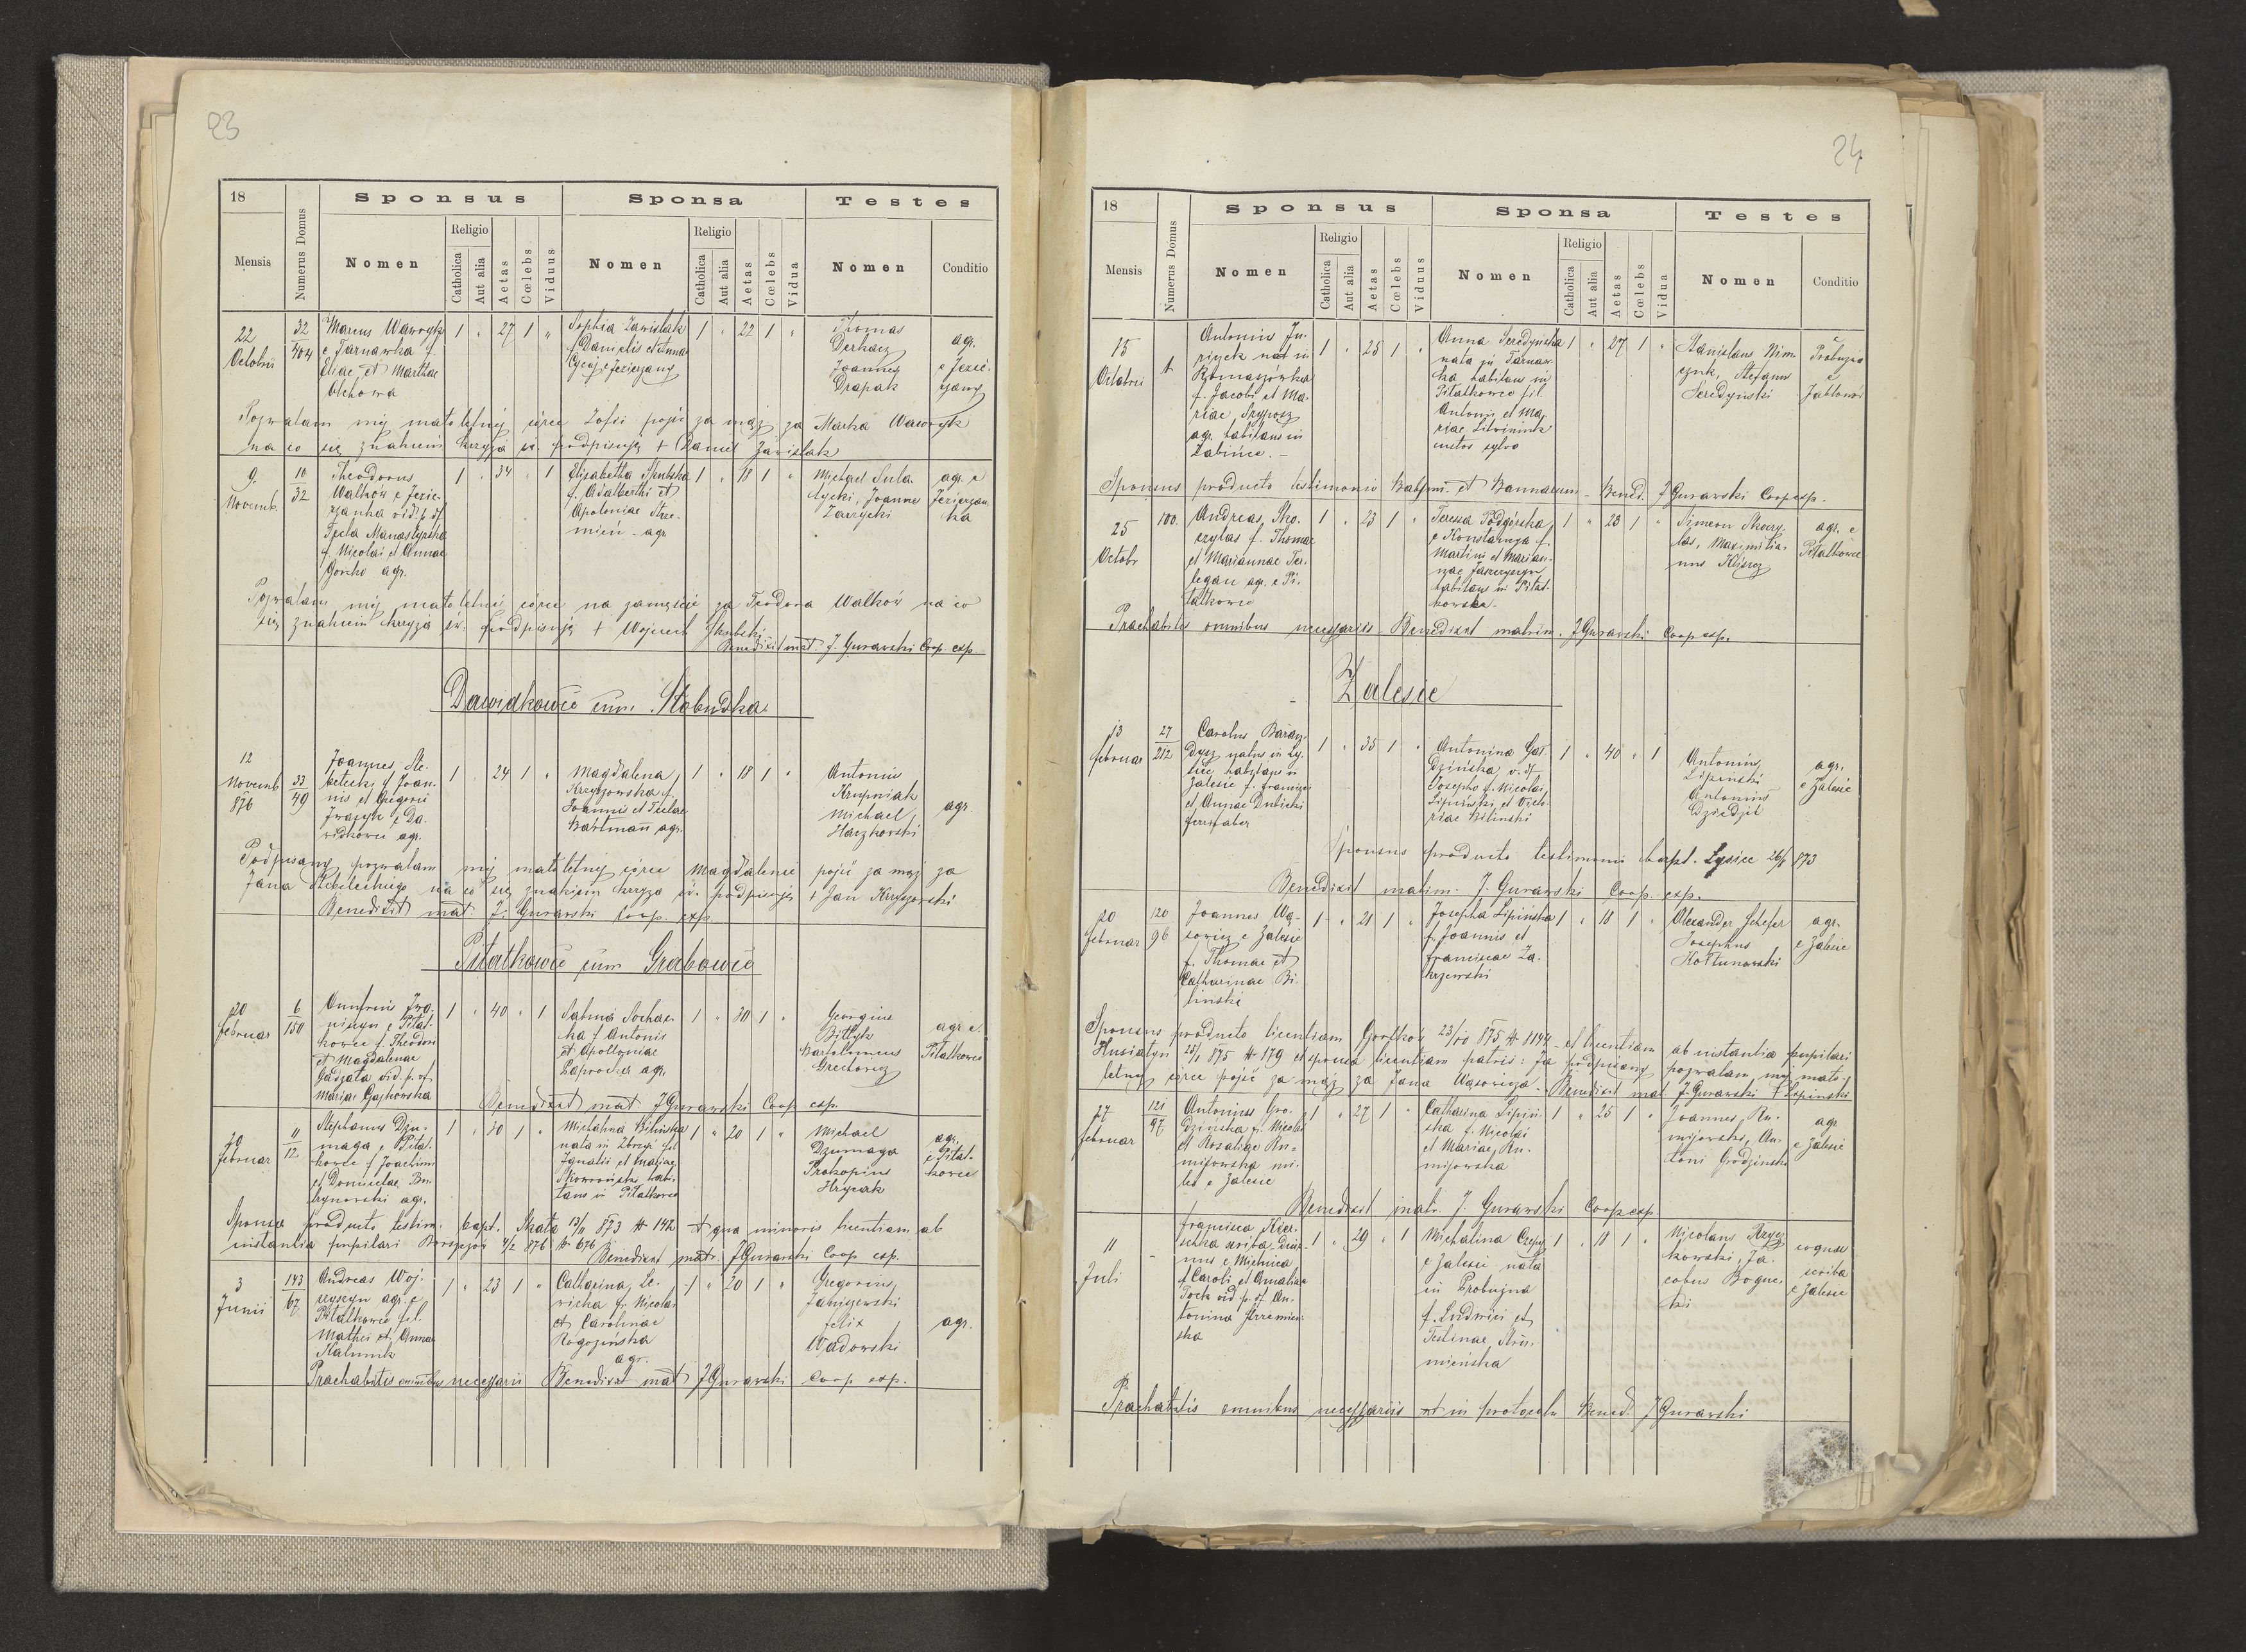 23
18
Mensis
Numerus Domus
Sponsus
Nomen
Religio
Catholica
Aut alia
Aetas
Cœlebs
Viduus
Sponsa
Nomen
Religio
Catholica
Aut alia
Aetas
Cœlebs
Vidua
Testes
Nomen
Conditio
22
Octobris
32
404
Marcus Wawryk
e Tarnawka f.
Eliae et Marthae
Olchowa
1 " 27 1 "
Sophia Zawislak
f. Danielis et Anna
1 " 22 1 "
Thomas
Derkacz
Joannes
Drapak
agr.
e Jezie-
rzany
Pozwalam mej małoletniej córce Zofii pojść za mąż za Marka Wawryk
na co się znakiem krzyża św. podpisuję + Daniel Zawislak
9
Novemb.
10
32
Theodorus
Walków e Jezie-
rzanka vid. p. df.
Tecla Manastyrska
f. Nicolai et Annae
Gorzko agr.
1 " 34 " 1
Elisabetha Skubska
f. Adalberti et
Apoloniae Strze-
mień - agr
1 " 18 1 "
Michael Sula-
tycki, Joannes
Zarzycki
agr. e
Jezierzan-
ka
Pozwalam mej małoletniej córce na zamęście za Teodora Walków na co
się znakiem krzyża św. podpisuję + Wojciech Skubski
Benedixit mat. J. Gurawski Coop. exp.
Dawidkowce cum Słobudka
12
Novemb
876
33
49
Joannes Ste-
belecki f. Joan-
nis et Gregorii
Iwasyk e Da-
widkowce agr.
1 " 24 1 "
Magdalena
Krzyżowska f.
Joannis et Teclae
Bartmann agr.
1 " 18 1 "
Antonius
Krupniak
Michael
Haczkowski
agr.
Podpisany pozwalam mej małoletniej córce Magdalenie pojść za mąż za
Jana Stebeleckiego na co się znakiem krzyża św. podpisuję + Jan Krzyżowski
Benedixit mat. J. Gurawski Coop. exp.
Piłatkowce cum Grabowce
20
Februar
6
150
Onufrius Iwa-
niszyn e Piłat-
kowce f. Theodori
et Magdalenae
Gadzata vid. p. df
Mariae Gajkowska
1 " 40 " 1
Sabina Sochac-
ka f. Antonis
et Apolloniae
Paprocka agr.
1 " 30 1 "
Georgius
Bittyk
Bartolomeus
Grechowicz
agr. e
Piłatkowce
Benedixit mat J Gurawski Coop exp.
20
Februar
11
12
Stephanus Dżu-
maga e Piłat-
kowce f. Joachimi
et Domicelae Bu-
trynowski agr.
1 " 30 1 "
Michalina Bilinska
nata in Zbryż fil
Ignatii et Mariae
Skowrońska habi-
tans in Piłatkowce
1 " 20 1 "
Michael
Dzumaga
Prokopius
Hrycak
agr.
e Piłat-
kowce
Sponsa producto testim. bapt. Skała 13/11 873 # 142 et qua minoris licentiam ab
instantia pupilari Borszczów 4/2 876 # 676 Benedixit matr. J Gurawski Coop exp.
3
Junii
143
67
Andreas Woj-
ciszyn agr. e
Piłatkowce fil.
Mathei et Annae
Kalinuk
1 " 23 1 "
Catharina Le-
wicka f. Nicolai
et Carolinae
Rogozinska
agr.
1 " 20 1 "
Gregorius
Janiszewski
Felix
Wadowski
agr.
Praehabitis omnibus necessariis Benedixit mat J Gurawski Coop exp.
24
18
Mensis
Numerus Domus
Sponsus
Nomen
Religio
Catholica
Aut alia
Aetas
Cœlebs
Viduus
Sponsa
Nomen
Religio
Catholica
Aut alia
Aetas
Cœlebs
Vidua
Testes
Nomen
Conditio
15
Octobris
1
Antonius Ju-
rizek nat in
Romaszówka
f. Jacobi et Ma-
riae Szyposz
agr. habitans in
Zabince. -
1 " 25 1 "
Anna Seredyńska
nata in Tarnaw-
ka habitans in
Piłatkowce fil.
Antonis et Ma-
riae Litwiniuk
custos sylvo
1 " 27 1 "
Stanislaus Nim-
czuk, Stefanus
Seredyński
e
Probużna
e
Jabłonów
Sponsus producto testimonio Baptism. et Bannorum - Bened. J Gurawski Coop exp.
25
Octobr
100
Andreas Sko-
czylas f. Thomae
et Mariannae Ter-
legan agr. e Pi-
łatkowce
1 " 23 1 "
Teressa Podgórska
e Konstancya f.
Martini et Marian-
nae Jaszczyszyn
habitans in Piłat-
kowska
1 " 23 1 "
Simeon Skoczy-
las, Maximilia-
nus Kijacz
agr. e
Piłatkowce
Praehabitis omnibus necessariis Benedixit matrim. J Gurawski Coop exp.
Zalesie
13
Februar
27
212
Carolus Baran-
dysz natus in Ły-
siec habitans in
Zalesie f. Francisci
et Annae Dubicki
ferrifaber
1 " 35 1 "
Antonina Gar-
dzińska v. df
Josepho f. Nicolai
Lipiński et Victo-
riae Bilinski
1 " 40 " 1
Antonius
Lipiński
Antonius
Dziedzic
agr.
e Zalesie
Sponsus producto testimonio bapt. Łysiec 26/1 873
Benedixit matrim. J. Gurawski Coop. exp.
20
Februar
120
96
Joannes Wą-
sowicz e Zalesie
f. Thomae et
Catharinae Bi-
linski
1 " 21 1 "
Josepha Lipińska
f. Joannis et
Franciscae Za-
krzewski
1 " 18 1 "
Alexander Schefer
Josephus
Kołtunowski
agr.
e Zalesie
Sponsus producto licentiam Czortków 23/10 875 # 1194 et licentiam ab instantia pupilari
Husiatyn 25/1 875 # 179 et sponsa licentiam patris: Ja podpisany pozwalam mej mało-
letniej córce pojść za mąż za Jana Wąsowicza. - Benedixit mat J. Gurawski + Lipinski
27
Februar
121
97
Antonius Gro-
dzinska f. Nicolai
et Rosaliae Ru-
mijowska mi-
les e Zalesie
1 " 27 1 "
Catharina Lipin-
ska f. Nicolai
et Mariae Ru-
mijowska
1 " 25 1 "
Joannes Ru-
mijowski, An-
toni Grodzinski
agr
e Zalesie
Benedixit matr. J. Gurawski Coop exp
11
Juli
" 1 " 29 " 1
nus e Mielnica
f. Caroli et Amaliae
Pock vid p. df. An-
tonina Jarremien-
ska
Michalina Czepiy
e Zalesie nata
in Probużna
f. Ludwici et
Teclinae Strus-
mieńska
1 " 18 1 "
Nicolaus Krzyż-
kowski, Ja-
cobus Boguc-
ki
scriba
e Zalesie
Praehabitis omnibus necessariis ut in protocolo Bened. J Gurawski